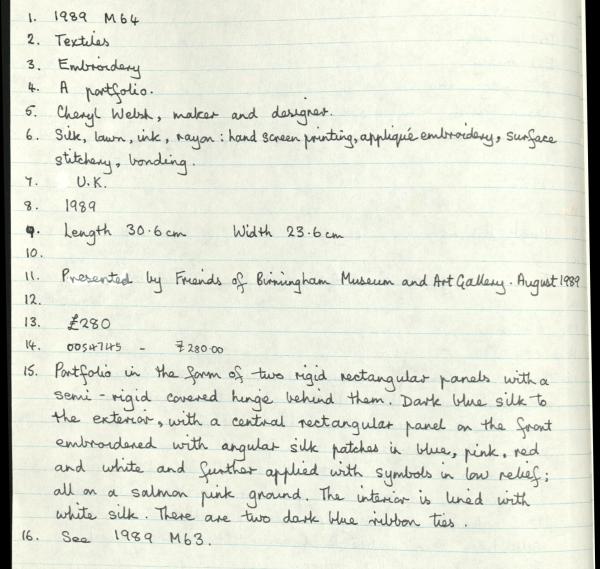 1. 1989 M64
2. Textiles
3. Embroidery
4. A portfolio.
5. Cheryl Welsh, maker and designer.
6. Silk, lawn, ink, rayon: hand screen printing, appliqué embroidery, surface
stitchery, bonding.
7. U.K.
8. 1989
9. Length 30.6cm Width 23.6cm
10.
11. Presented by Friends of Birmingham Museum and Art Gallery. August 1989
12.
13. £280
14. 0054745 - £280.00
15. Portfolio in the form of two rigid rectangular panels with a
semi-rigid covered hinge behind them. Dark blue silk to
the exterior, with a central rectangular panel on the front
embroidered with angular silk patches in blue, pink, red
and white and further applied with symbols in low relief;
all on a salmon pink ground. The interior is lined with
white silk. There are two dark blue ribbon ties.
16. See 1989 M63.